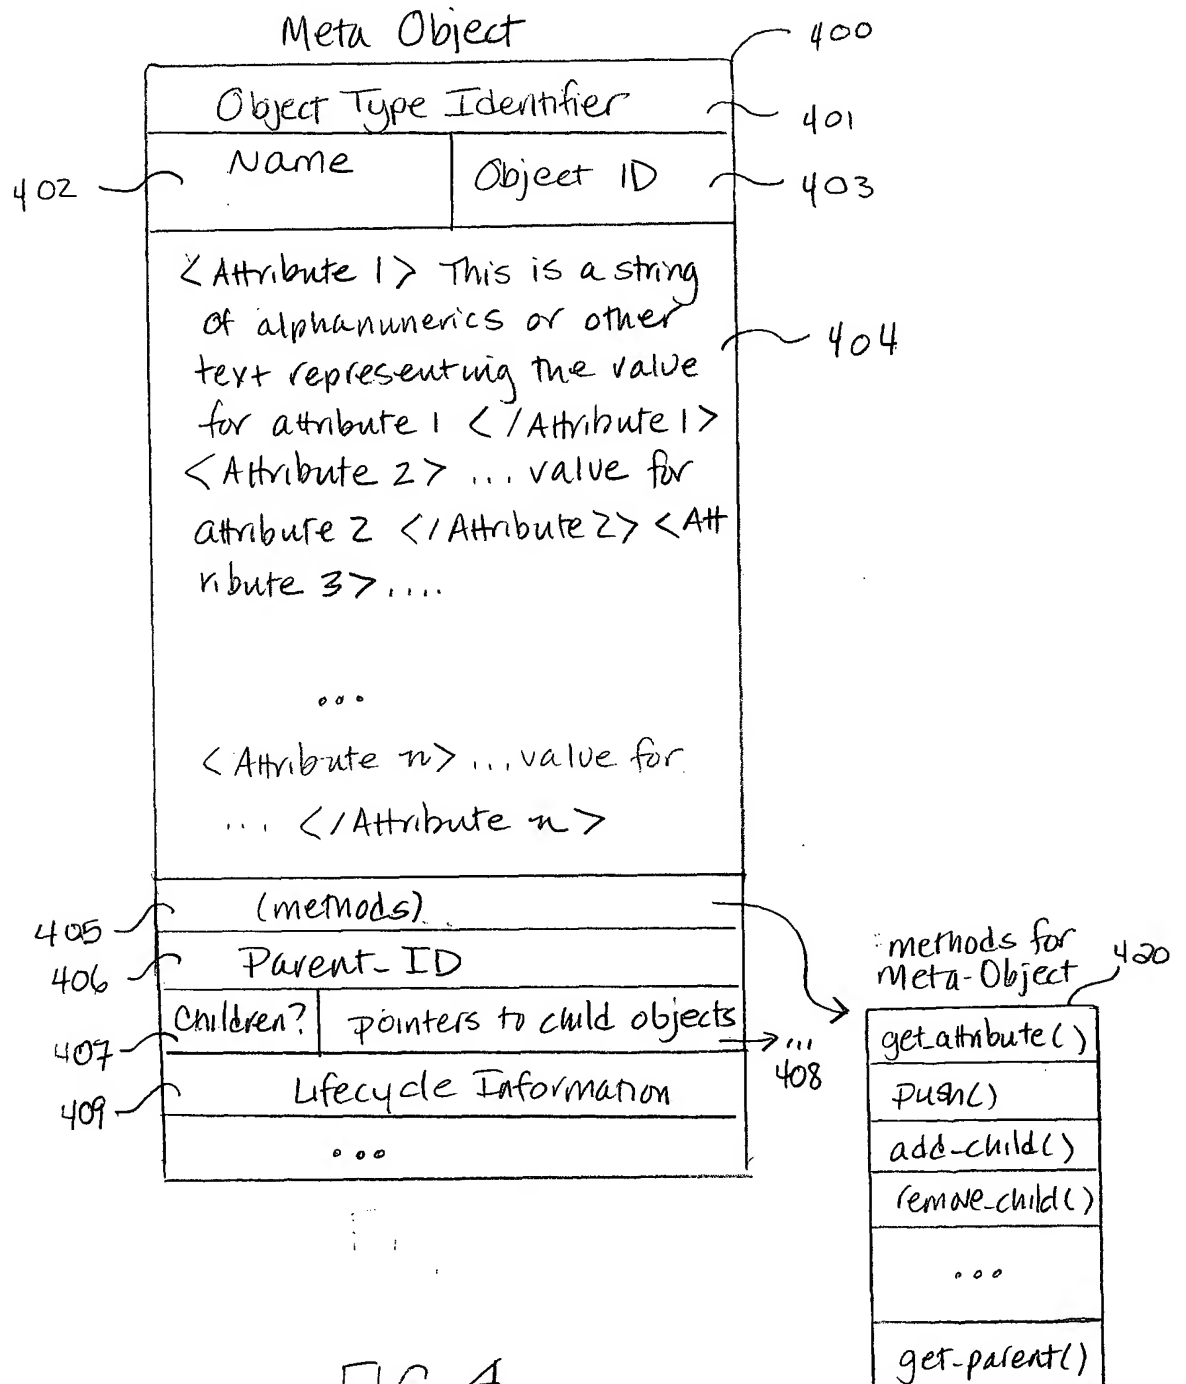 Meta Object
400
Object Type Identifier
401
402
Name
Object ID
403
<Attribute 1> This is a string
of alphanunerics or other
text representing the value
for attribute 1 </Attribute 1>
<Attribute 2> ... value for
attribute 2 </Attribute 2> <Att
ribute 3>....
404
...
<Attribute n> ... value for
... </Attribute n>
405
(methods)
406
Parent_ID
407
Children?
pointers to child objects
...
408
409
Lifecycle Information
...
methods for
Meta-Object
420
get_attribute()
push()
add_child()
remove_child()
...
get_parent()